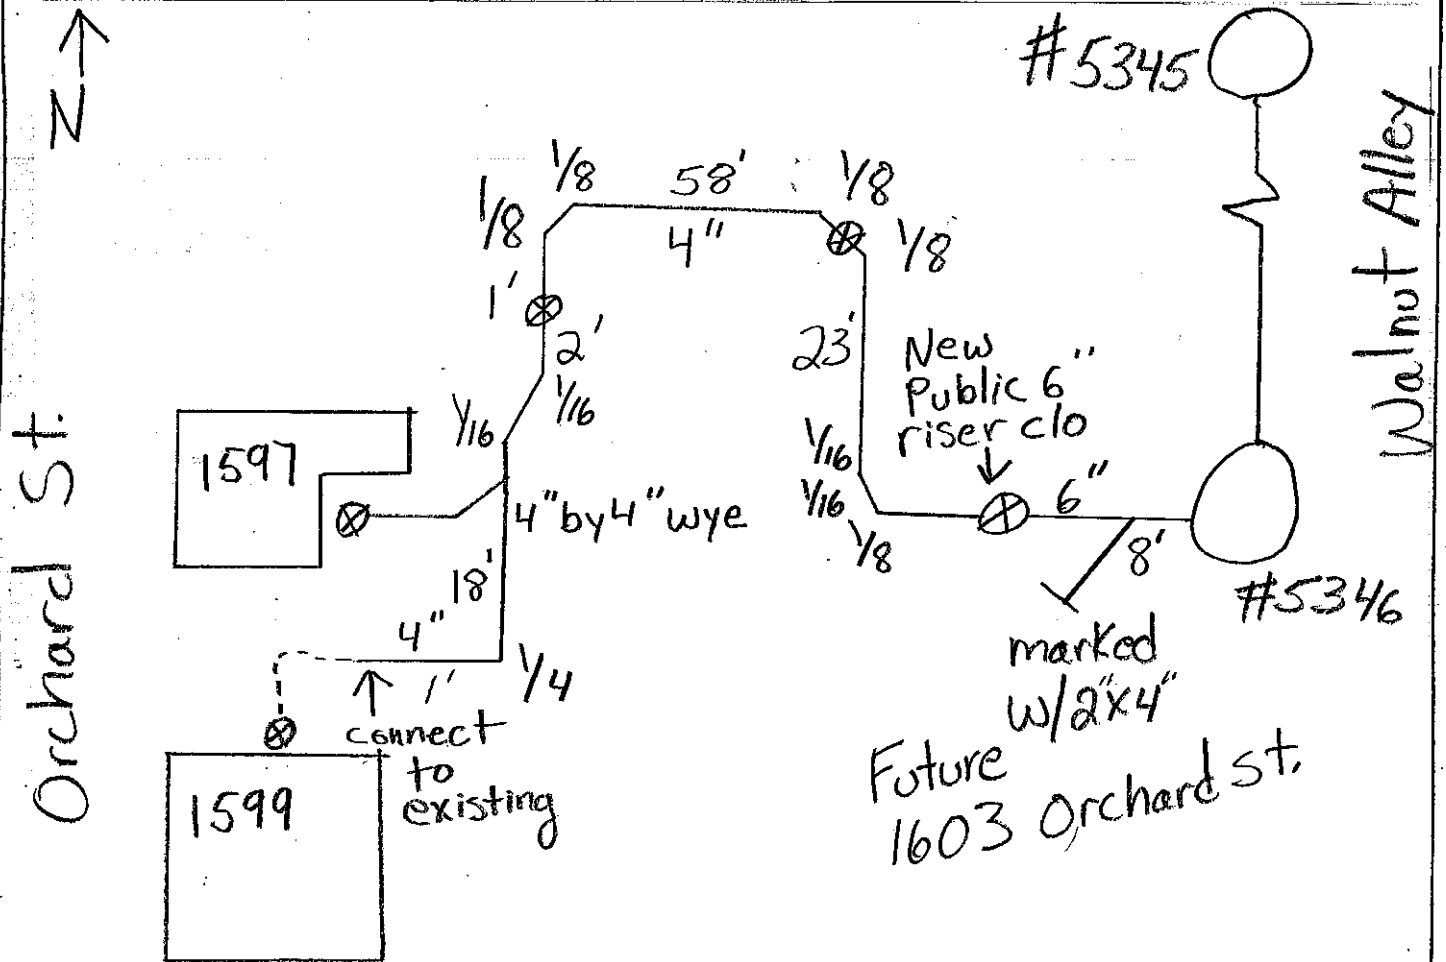 N
#5345
Walnut Alley
1/8
58'
1/8
1/8
4"
1/8
1'
2'
1/16
1/16
23'
New
Public 6"
riser c/o
1597
4" by 4" wye
1/16
1/16
1/8
6"
8'
#5346
18'
4"
1'
1/4
connect
to
existing
1599
marked
w/2"x4"
Future
1603 Orchard St.
Orchard St.